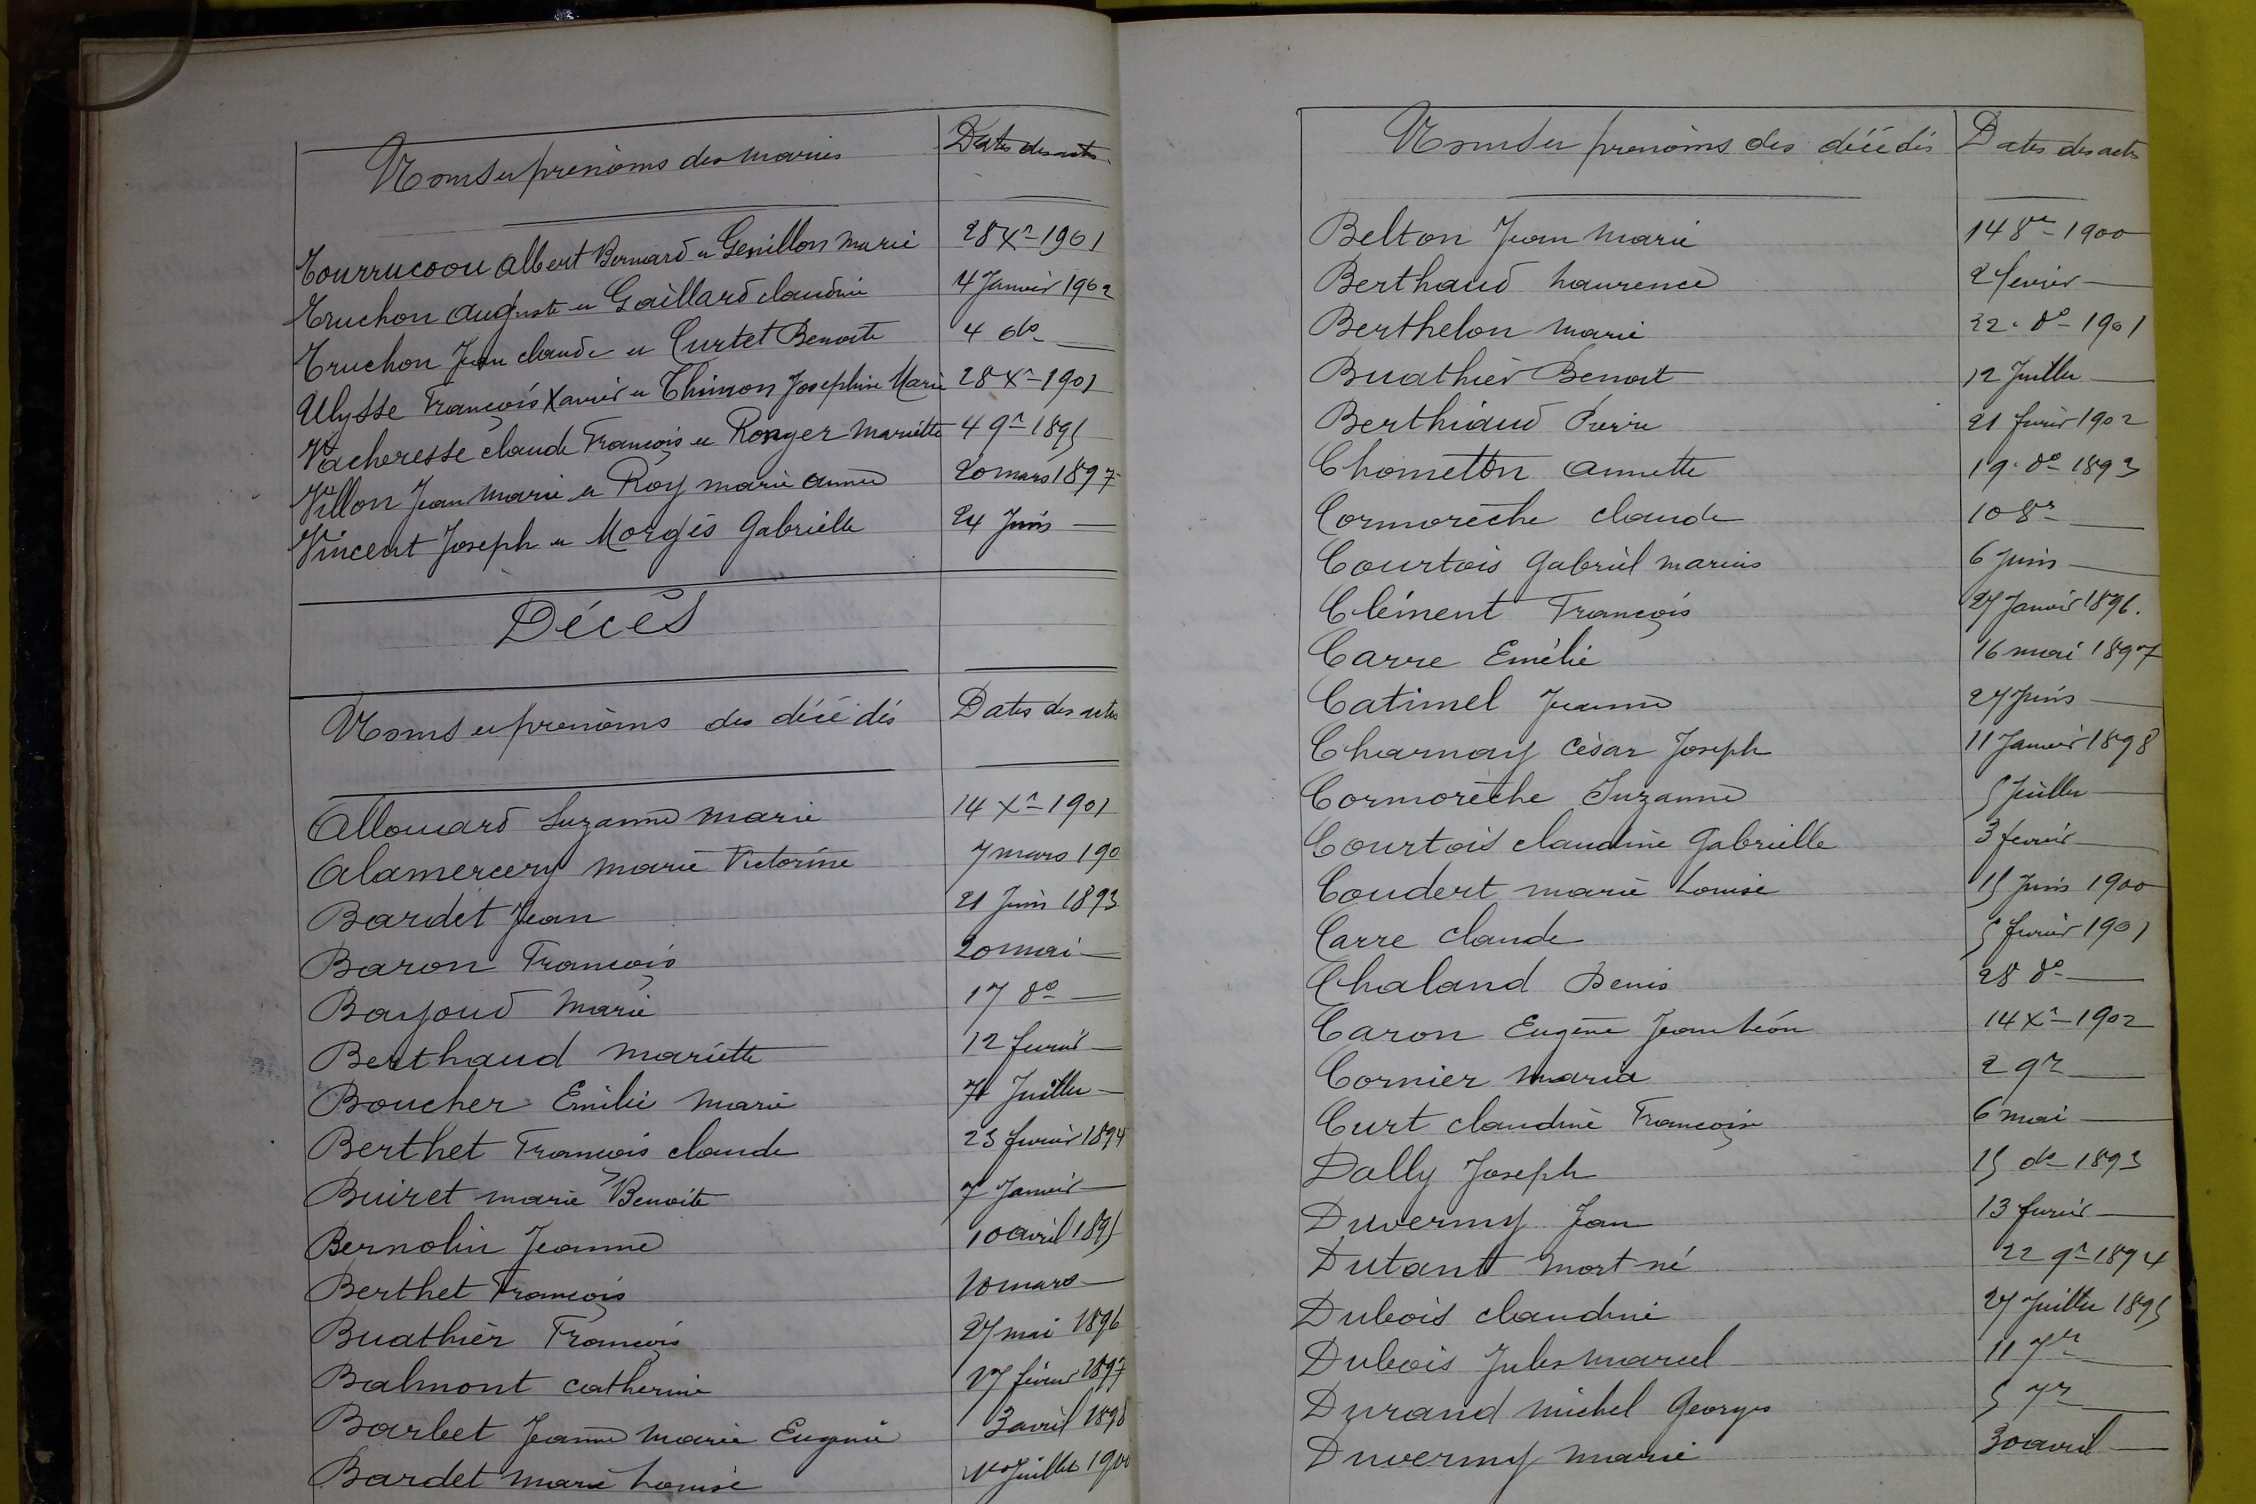 Noms et prénoms des mariés Dates des actes
Tourrucoou Albert Bernard et Genillon Marie 28 Xre 1901
Truchon Auguste et Gaillard Claudine 4 Janvier 1902
Truchon Jean Claude et Curtet Benoite 4 do —
Ulysse François Xavier et Thimon Josephine Marie 28 Xre 1901
Vacheresse Claude François et Ronger Mariette 4 9re 1895
Villon Jean Marie et Roy Marie Anne 20 mars 1897
Vincent Joseph et Morgès Gabrielle 24 Juin —
Décès
Noms et prénoms des décédés Dates des actes
Allouard Suzanne Marie 14 Xre 1901
Alamercery Marie Victorine 7 mars 190
Bardet Jean 21 Juin 1893
Baron François 20 mai —
Bayoud Marie 17 do —
Berthaud Mariette 12 fevrier —
Boucher Emilie Marie 7 Juillet —
Berthet François Claude 23 fevrier 1894
Buiret Marie Benoite 7 Janvier —
Bernolin Jeanne 10 avril 1895
Berthet François 10 mars —
Buathier François 27 mai 1896
Balmont Catherine 17 fevrier 1897
Barbet Jeanne Marie Eugenie 3 avril 1898
Bardet Marie Louise Juillet 1900
Noms et prénoms des décédés Dates des actes
Belton Jean Marie 14 8re 1900
Berthaud Laurence 2 fevrier —
Berthelon Marie 22 do 1901
Buathier Benoit 12 Juillet —
Berthiaud Pierre 21 fevrier 1902
Chometton Annette 19 do 1893
Cormorèche Claude 10 8re —
Courtois Gabriel Marius 6 Juin —
Clément François 27 Janvier 1896.
Carre Emélie 16 mai 1897
Catimel Jeanne 27 Juin —
Charnay César Joseph 11 Janvier 1898
Cormorèche Suzanne 5 Juillet —
Courtois Claudine Gabrielle 3 fevrier —
Coudert Marie Louise 15 Juin 1900
Carre Claude 5 fevrier 1901
Chaland Denis 28 do —
Caron Eugène Jean Léon 14 Xre 1902
Cornier Maria 2 9re —
Curt Claudine Françoise 6 mai —
Dally Joseph 15 do 1893
Duverny Jean 13 fevrier —
Dutant mort né 22 9re 1894
Dubois Claudine 27 Juillet 1895
Dubois Jules Marcel 11 7re —
Durand Michel Georges 5 7re —
Duverny Marie 30 avril —